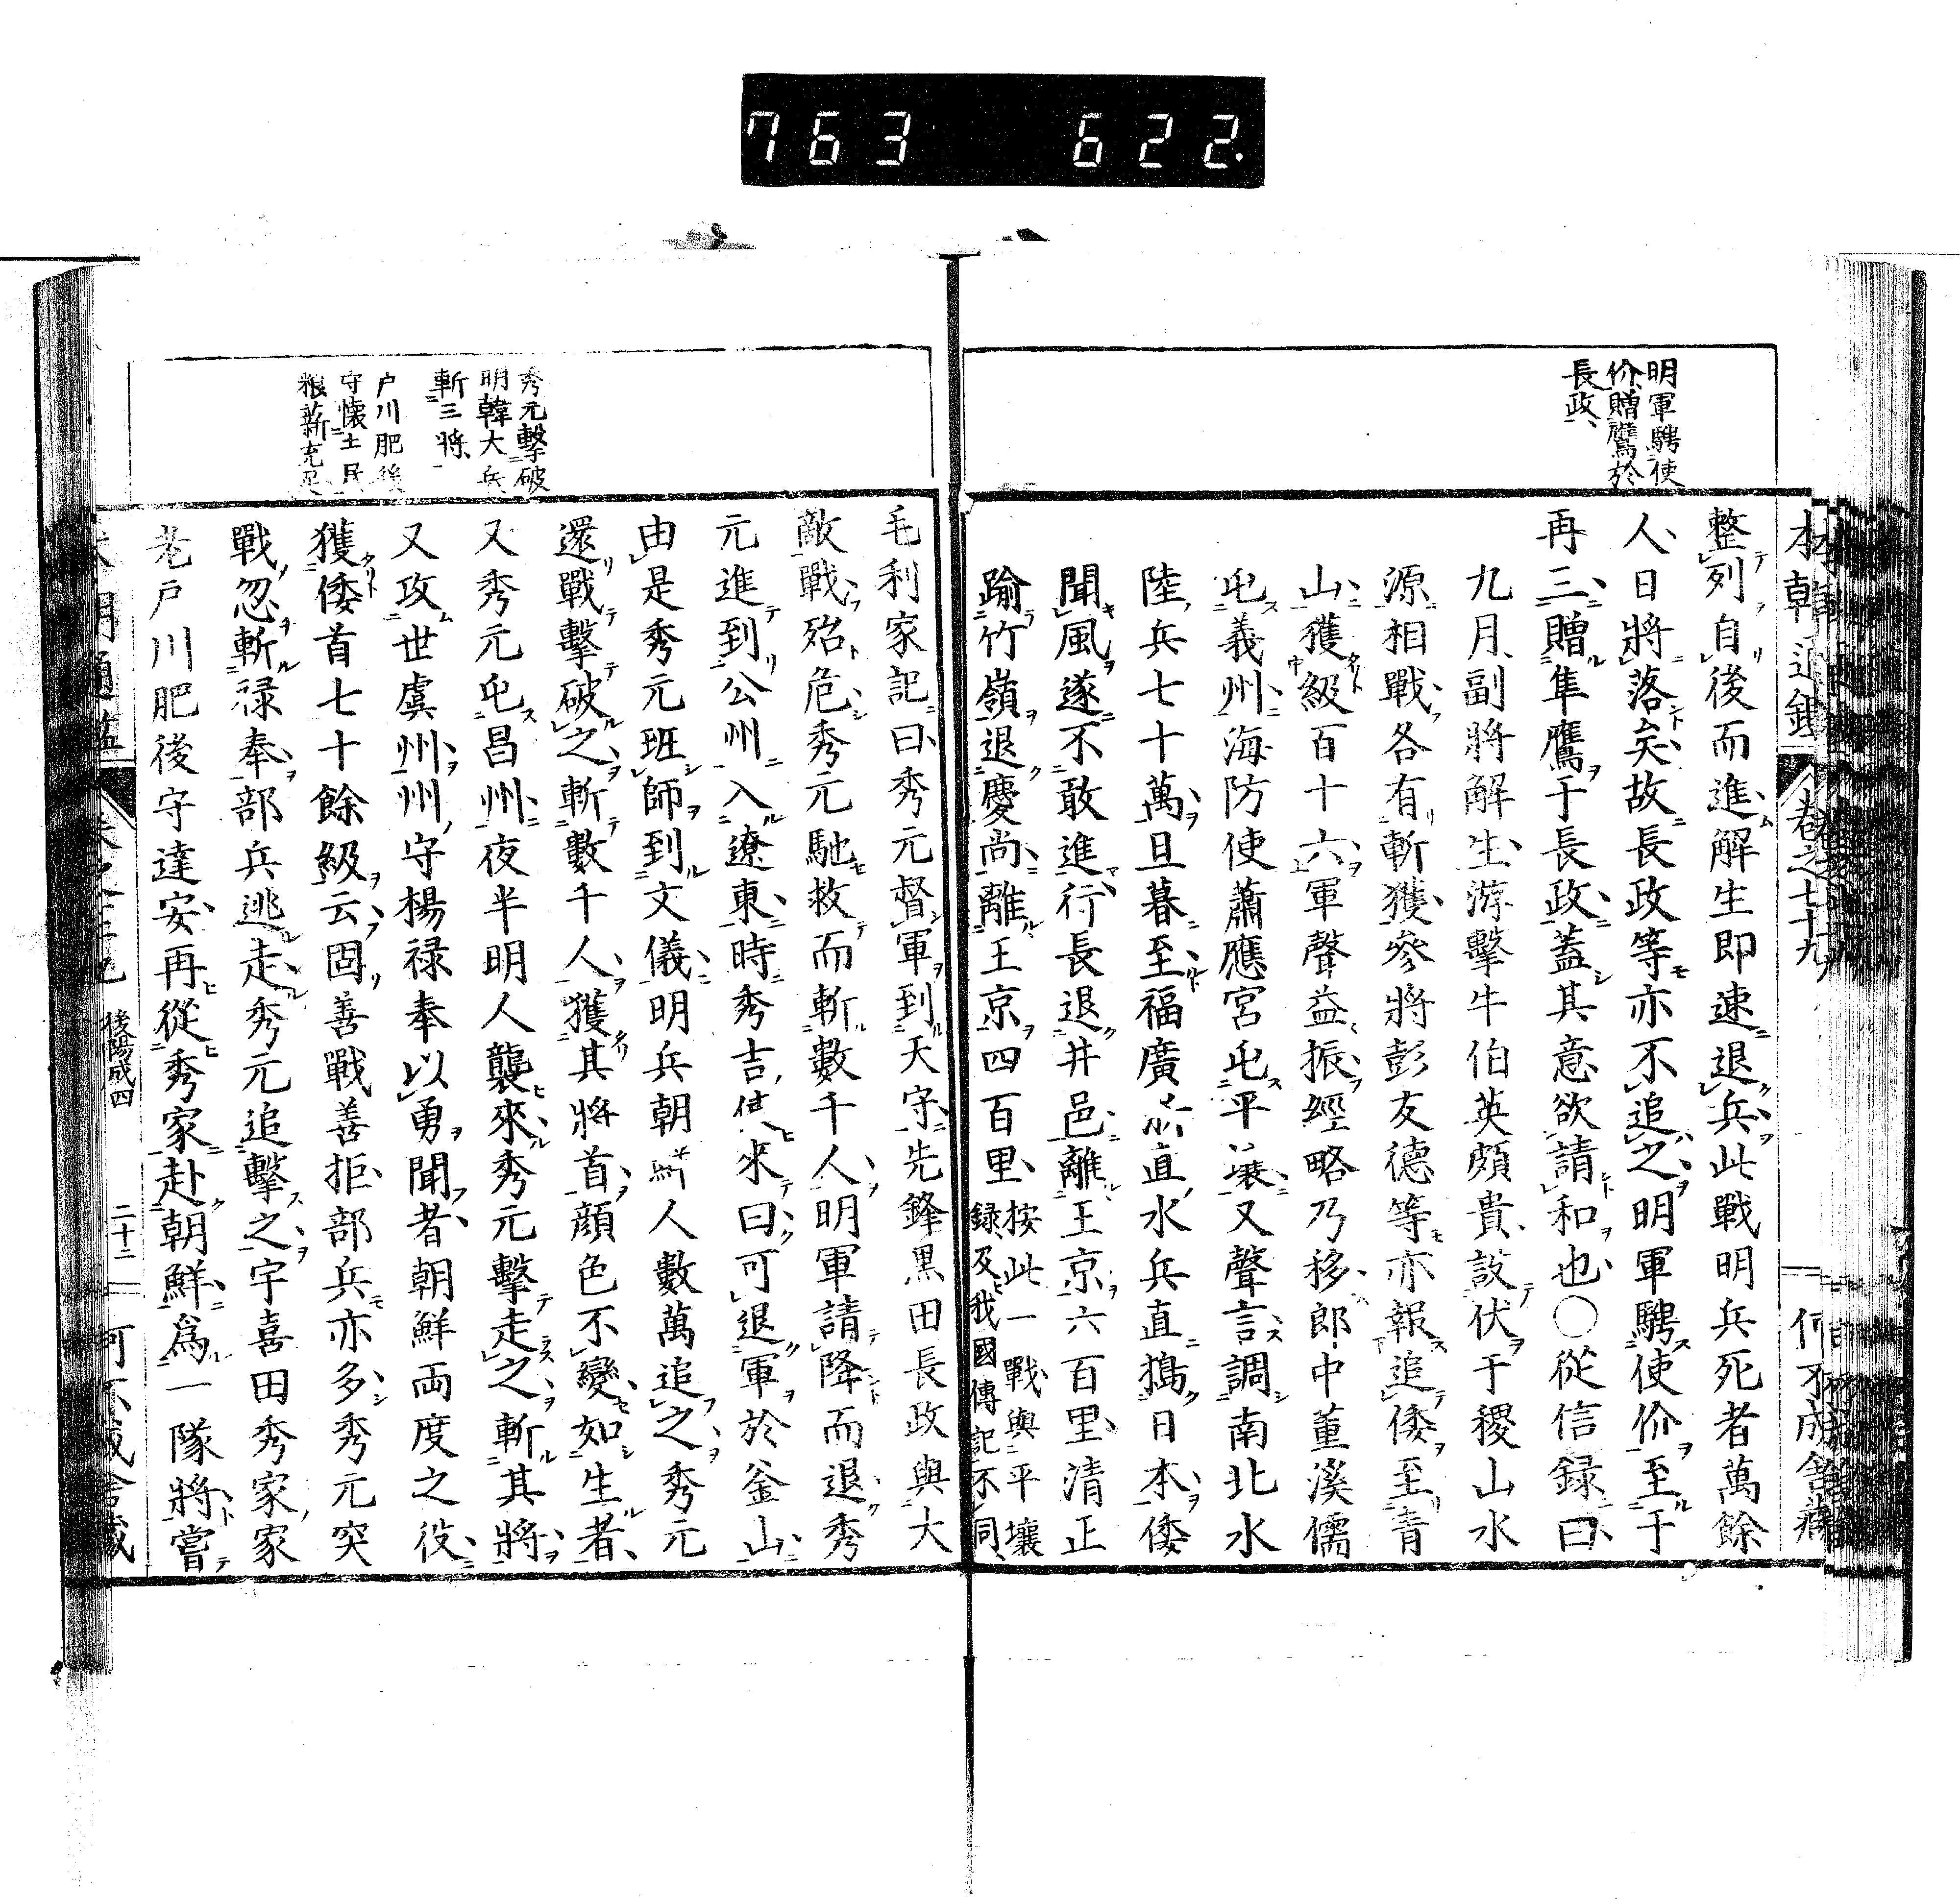 763 622.
明軍騁使
价贈鷹於
長政
整列自後而進解生即速退兵此戰明兵死者萬餘
人日將落矣故長政等亦不追之明軍騁使价至于
再三贈隼鷹于長政蓋其意欲請和也○從信録曰
九月副將解生游擊牛伯英頗貴設伏于稷山水
源相戰各有斬獲參將彭友德等亦報追倭至青
山獲級百十六軍聲益振經略乃移郎中董漢儒
屯義州海防使蕭應宮屯平壤又聲言調南北水
陸兵七十萬旦暮至福廣直水兵直搗日本倭
聞風遂不敢進行長退井邑離王京六百里清正
踰竹嶺退慶尚離王京四百里按此一戰與平壤
録及我國傳記不同
秀元擊破
明韓大兵
斬三將
户川肥後
守懐土民
粮薪充足
毛利家記曰秀元督軍到天守先鋒黒田長政與大
敵戰殆危秀元馳救而斬數千人明軍請降而退秀
元進到公州入遼東時秀吉使來曰可退軍於釜山
由是秀元班師到文儀明兵朝鮮人數萬追之秀元
還戰擊破之斬數千人獲其將首顔色不變如生者
又秀元屯昌州夜半明人襲來秀元擊走之斬其將
又攻世虞州州守楊禄奉以勇聞者朝鮮両度之役
獲倭首七十餘級云固善戰善拒部兵亦多秀元突
戰忽斬禄奉部兵逃走秀元追擊之宇喜田秀家家
老户川肥後守達安再從秀家赴朝鮮爲一隊將嘗
後陽成四
二十二